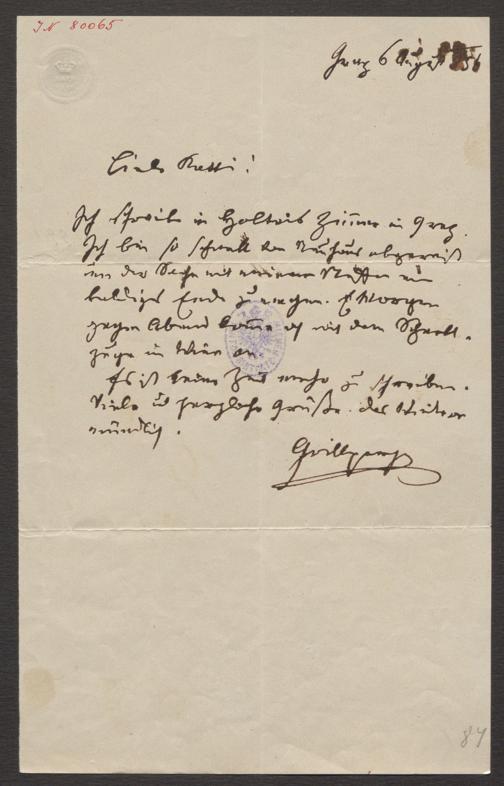 IN 80065
Graz 6 August
Liebe Katti!
Ich schreibe in Holteis Zimmer in Graz.
Ich bin so schnell von Neuhaus abgereist
um der Sache mit meinem Neffen ein
baldiges Ende zu machen. Morgen
gegen Abend komme ich mit dem Schnell-
zuge in Wien an.
Es ist keine Zeit mehr zu schreiben.
Viele und herzliche Grüße. Das Weitere
mündlich.
Grillparzer
84